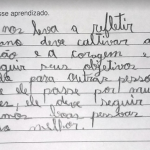 sse aprendizado.
nos leva a refletir
ano deve cultivar a
ão e a coragem e
guir seus objetivos
do para outras pessoa
ele passe por
ele deve seguir
mos boas pessoas
melhor.